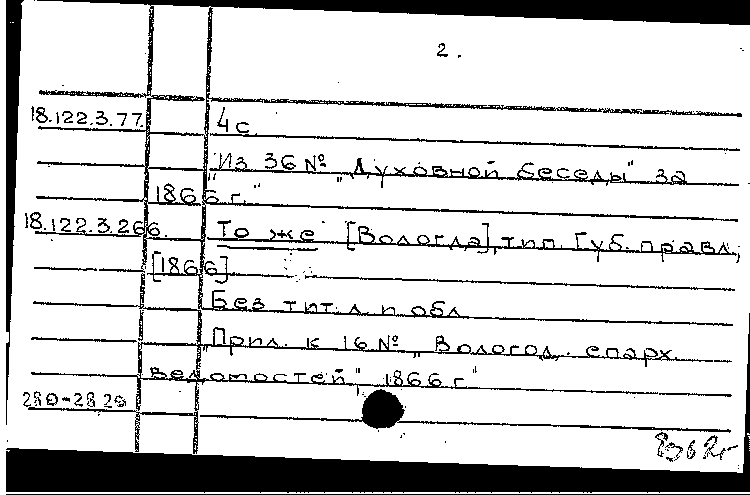 2.
18.122.3.77 4 с.
„Из 36 № „Духовной беседы" за
1866 г."
18.122.3.266. То же [Вологда], тип. Губ. правл.,
[1866]
Без тит. л. и обл.
„Прил. к 16 № „Вологод. епарх.
ведомостей", 1866 г."
280-2829